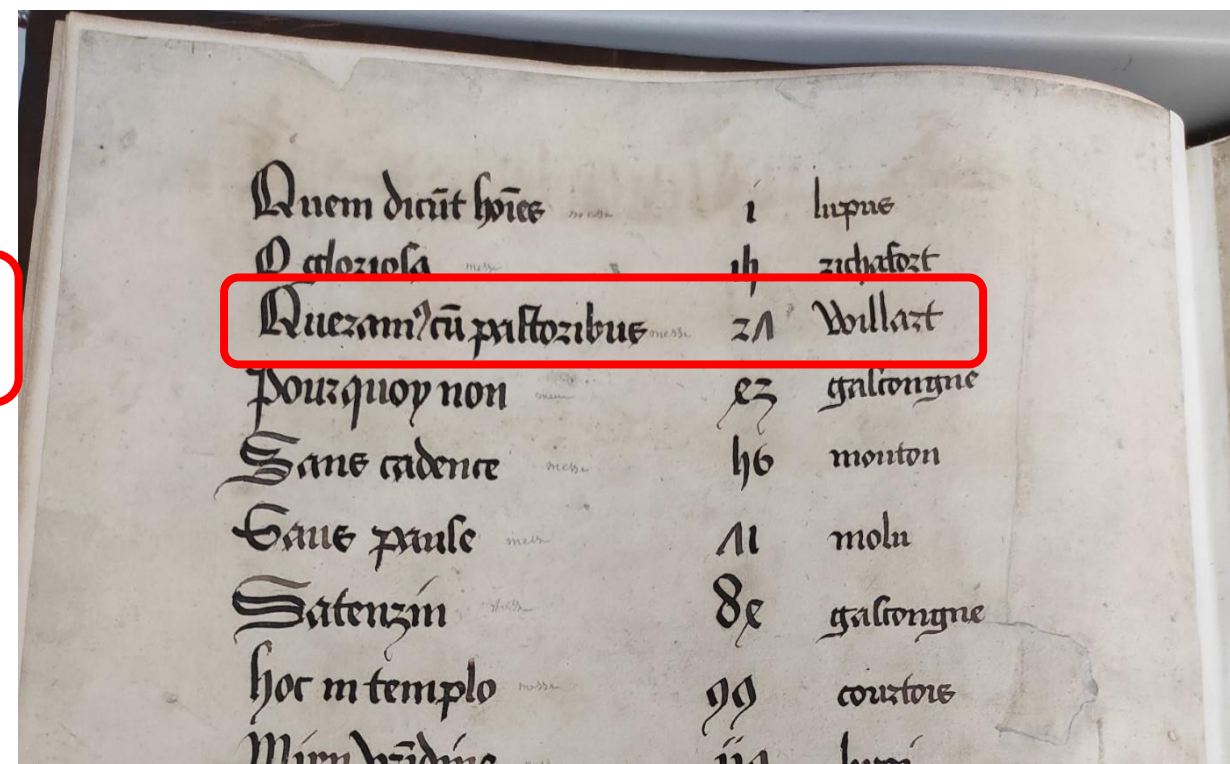 Quem dicūt hoīes messe i lupus
O gloriosa messe 15 richafort
Queramꝰ cū pastoribus messe 27 Willart
Pourquoy non messe 42 gascongne
Sans cadence messe 56 mouton
Sans pause messe 71 molu
messe 84 gascongne
hoc in templo messe 99 courtois
Mijn vrīdine lupi